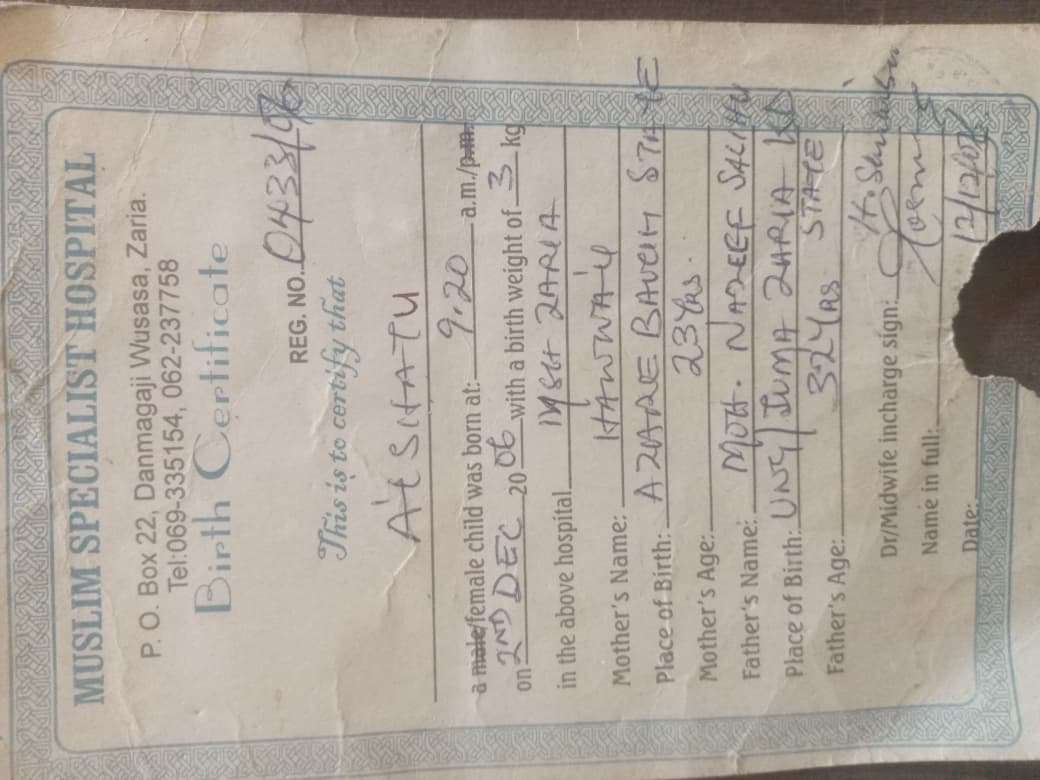 MUSLIM SPECIALIST HOSPITAL
P. O. Box 22, Danmagaji Wusasa, Zaria.
Tel:069-335154, 062-237758
Birth Certificate
REG. NO. 0433/06
This is to certify that
A'ISHATU
a male/female child was born at: 9.20 a.m./p.m.
on 2ND DEC 2006 with a birth weight of 3 kg
in the above hospital MSH ZARIA
Mother's Name: HAWWA'U
Place of Birth: AZARE BAUCHI STATE
Mother's Age: 23 YRS.
Father's Name: MOH. NAZEEF SALIHU
Place of Birth: UNG/JUMA ZARIA KD STATE
Father's Age: 32 YRS
Dr/Midwife incharge sign:
Name in full:
Date: 12/12/06